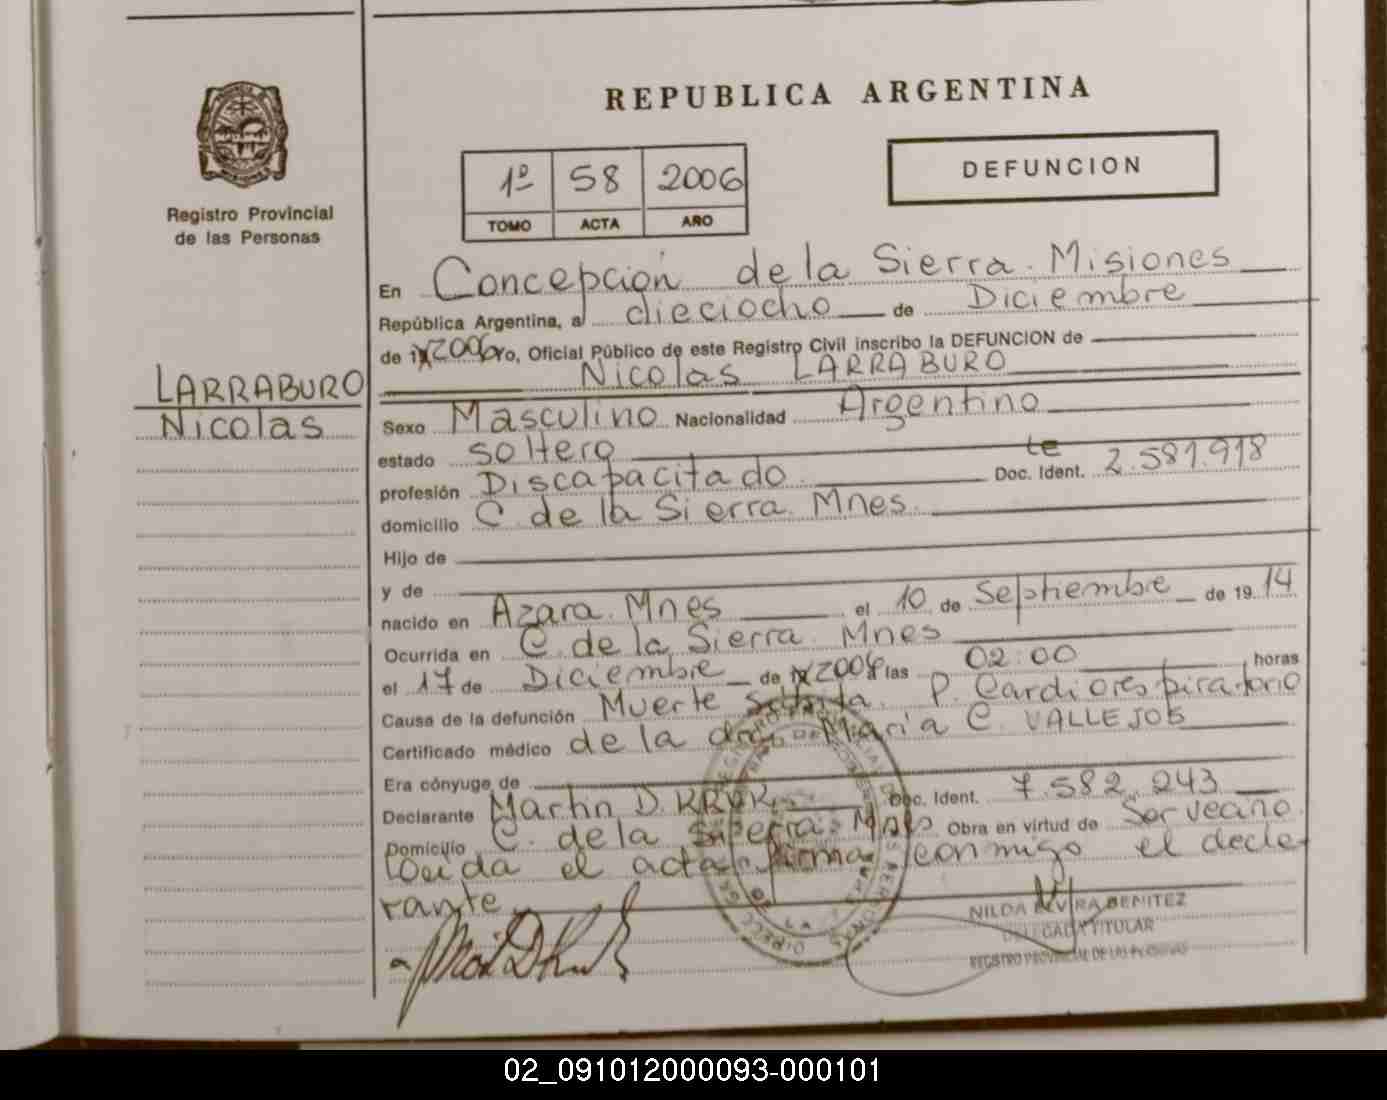 REPUBLICA ARGENTINA
Registro Provincial
de las Personas
1º 58 2006
TOMO ACTA AÑO
DEFUNCION
En Concepción de la Sierra. Misiones
República Argentina, a dieciocho de Diciembre
de 2006 ro, Oficial Público de este Registro Civil inscribo la DEFUNCION de
Nicolas LARRABURO
LARRABURO
Nicolas
Sexo Masculino Nacionalidad Argentino
estado soltero
profesión Discapacitado Doc. Ident. LE 2.581.918
domicilio C. de la Sierra. Mnes.
Hijo de
y de
nacido en Azara. Mnes el 10 de Septiembre de 1914
Ocurrida en C. de la Sierra. Mnes
el 17 de Diciembre de 2006 las 02:00 horas
Causa de la defunción Muerte Súbita. P. Cardiorespiratorio
Certificado médico de la dra. Maria C. VALLEJOS
Era cónyuge de
Declarante Martin D. Doc. Ident. 7.582.243
Domicilio C. de la Sierra. Mnes Obra en virtud de Ser vecino.
Leida el acta firma conmigo el decla
rante
NILDA ELVIRA BENITEZ
DELEGADA TITULAR
REGISTRO PROVINCIAL DE LAS PERSONAS
02_091012000093-000101